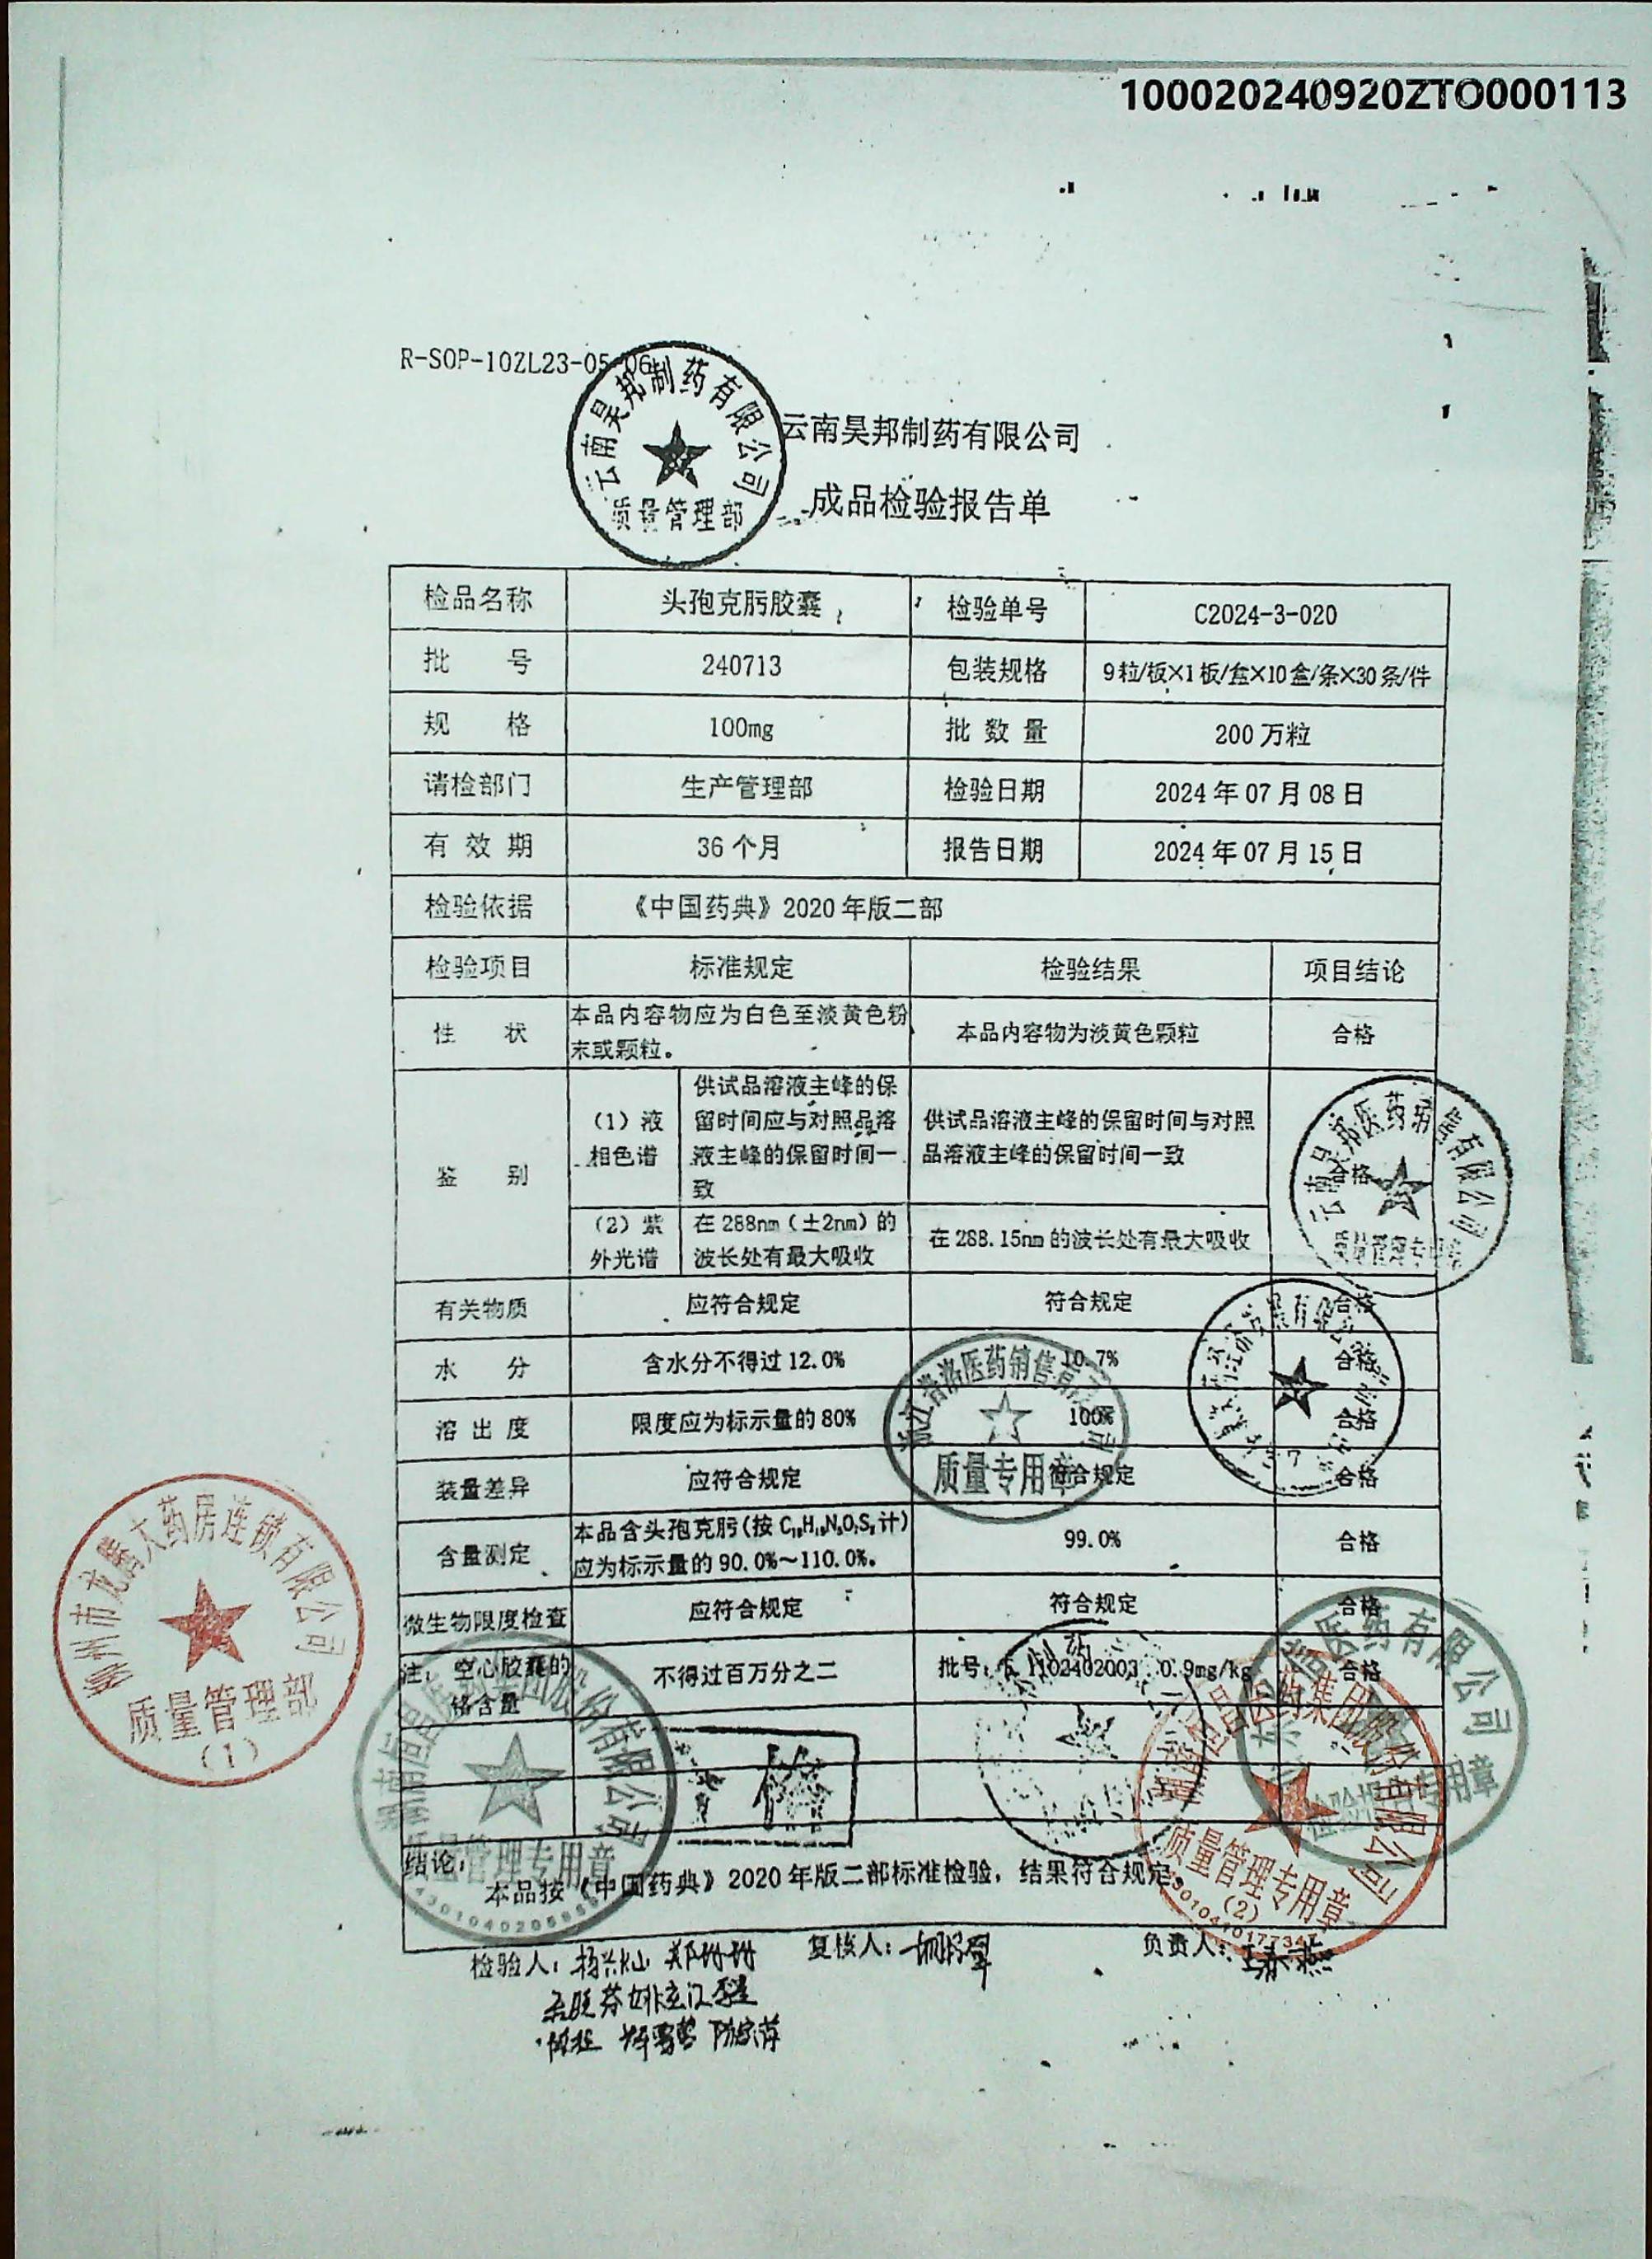 100020240920ZTO000113
R-SOP-10ZL23-05-06
云南昊邦制药有限公司
质量管理部
云南昊邦制药有限公司
成品检验报告单
检品名称 头孢克肟胶囊 检验单号 C2024-3-020
批 号 240713 包装规格 9粒/板×1板/盒×10盒/条×30条/件
规 格 100mg 批数量 200万粒
请检部门 生产管理部 检验日期 2024年07月08日
有效期 36个月 报告日期 2024年07月15日
检验依据 《中国药典》2020年版二部
检验项目 标准规定 检验结果 项目结论
性 状 本品内容物应为白色至淡黄色粉末或颗粒。 本品内容物为淡黄色颗粒 合格
鉴 别 (1)液相色谱 供试品溶液主峰的保留时间应与对照品溶液主峰的保留时间一致 供试品溶液主峰的保留时间与对照品溶液主峰的保留时间一致 合格
(2)紫外光谱 在288nm(±2nm)的波长处有最大吸收 在288.15nm的波长处有最大吸收
云南昊邦医药销售有限公司
有关物质 应符合规定 符合规定 合格
水 分 含水分不得过12.0% 10.7% 合格
溶出度 限度应为标示量的80% 100% 合格
装量差异 应符合规定 符合规定 合格
质量专用章
含量测定 本品含头孢克肟(按C₁₆H₁₅N₅O₇S₂计)应为标示量的90.0%~110.0%。 99.0% 合格
微生物限度检查 应符合规定 符合规定 合格
注:空心胶囊的铬含量 不得过百万分之二 批号: 1102402003 0.9mg/kg 合格
柳州市龙腾大药房连锁有限公司
质量管理部
(1)
质量管理专用章
质量管理专用章
(2)
结论:
本品按《中国药典》2020年版二部标准检验,结果符合规定。
检验人: 复核人: 负责人: